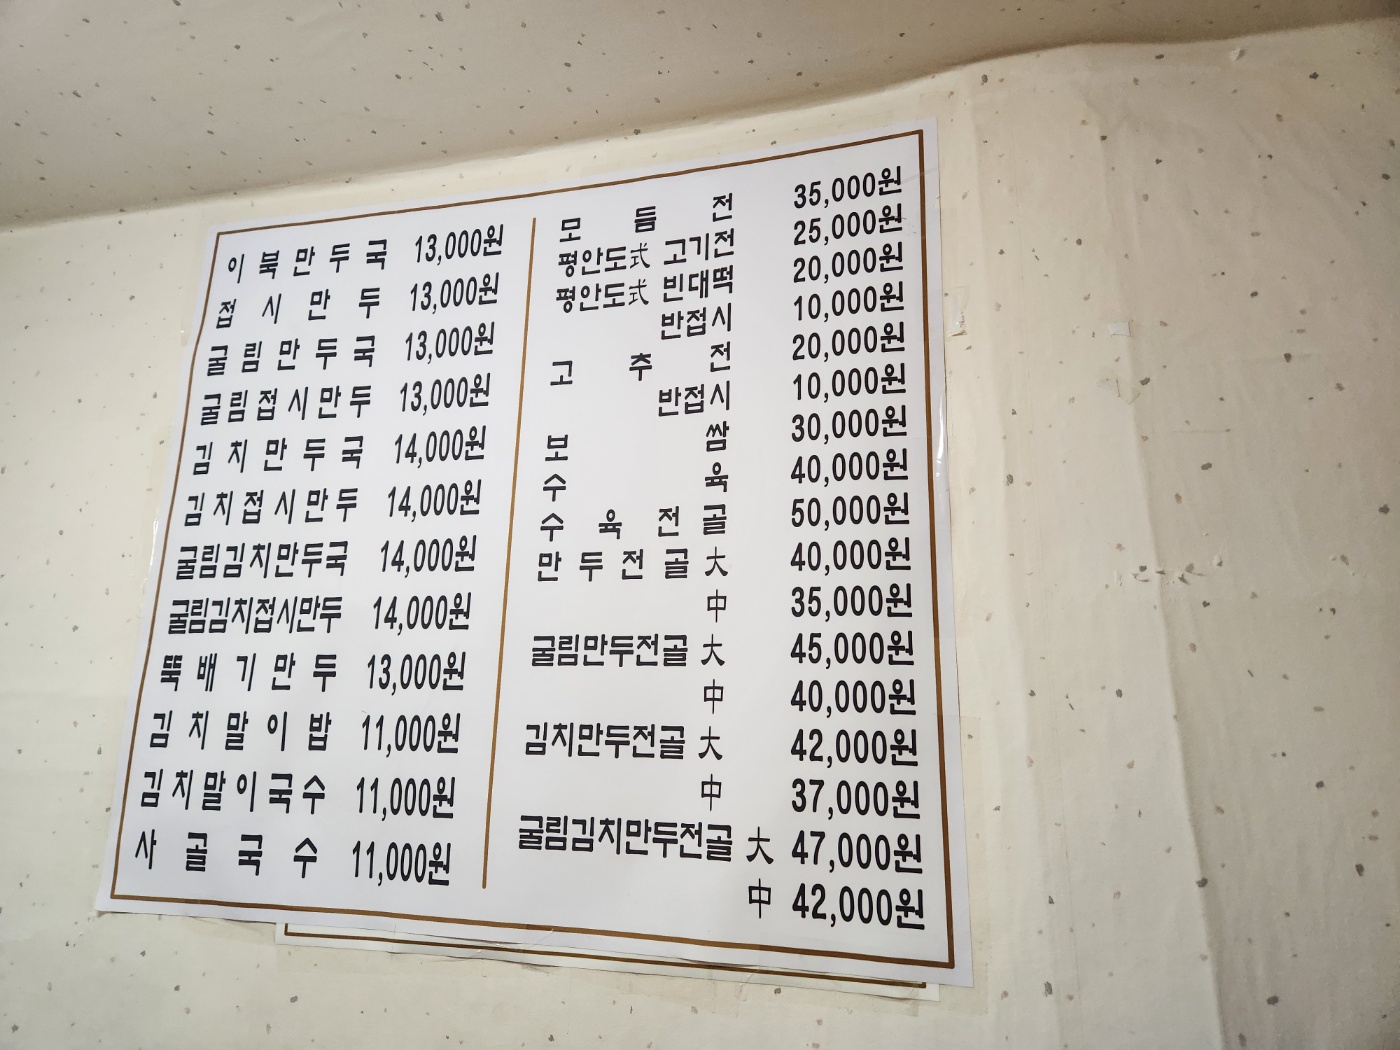 이북만두국 13,000원
접시만두 13,000원
굴림만두국 13,000원
굴림접시만두 13,000원
김치만두국 14,000원
김치접시만두 14,000원
굴림김치만두국 14,000원
굴림김치접시만두 14,000원
뚝배기만두 13,000원
김치말이밥 11,000원
김치말이국수 11,000원
사골국수 11,000원
모듬전 35,000원
평안도式 고기전 25,000원
평안도式 빈대떡 20,000원
반접시 10,000원
고추전 20,000원
반접시 10,000원
보쌈 30,000원
수육 40,000원
수육전골 50,000원
만두전골 大 40,000원
中 35,000원
굴림만두전골 大 45,000원
中 40,000원
김치만두전골 大 42,000원
中 37,000원
굴림김치만두전골 大 47,000원
中 42,000원